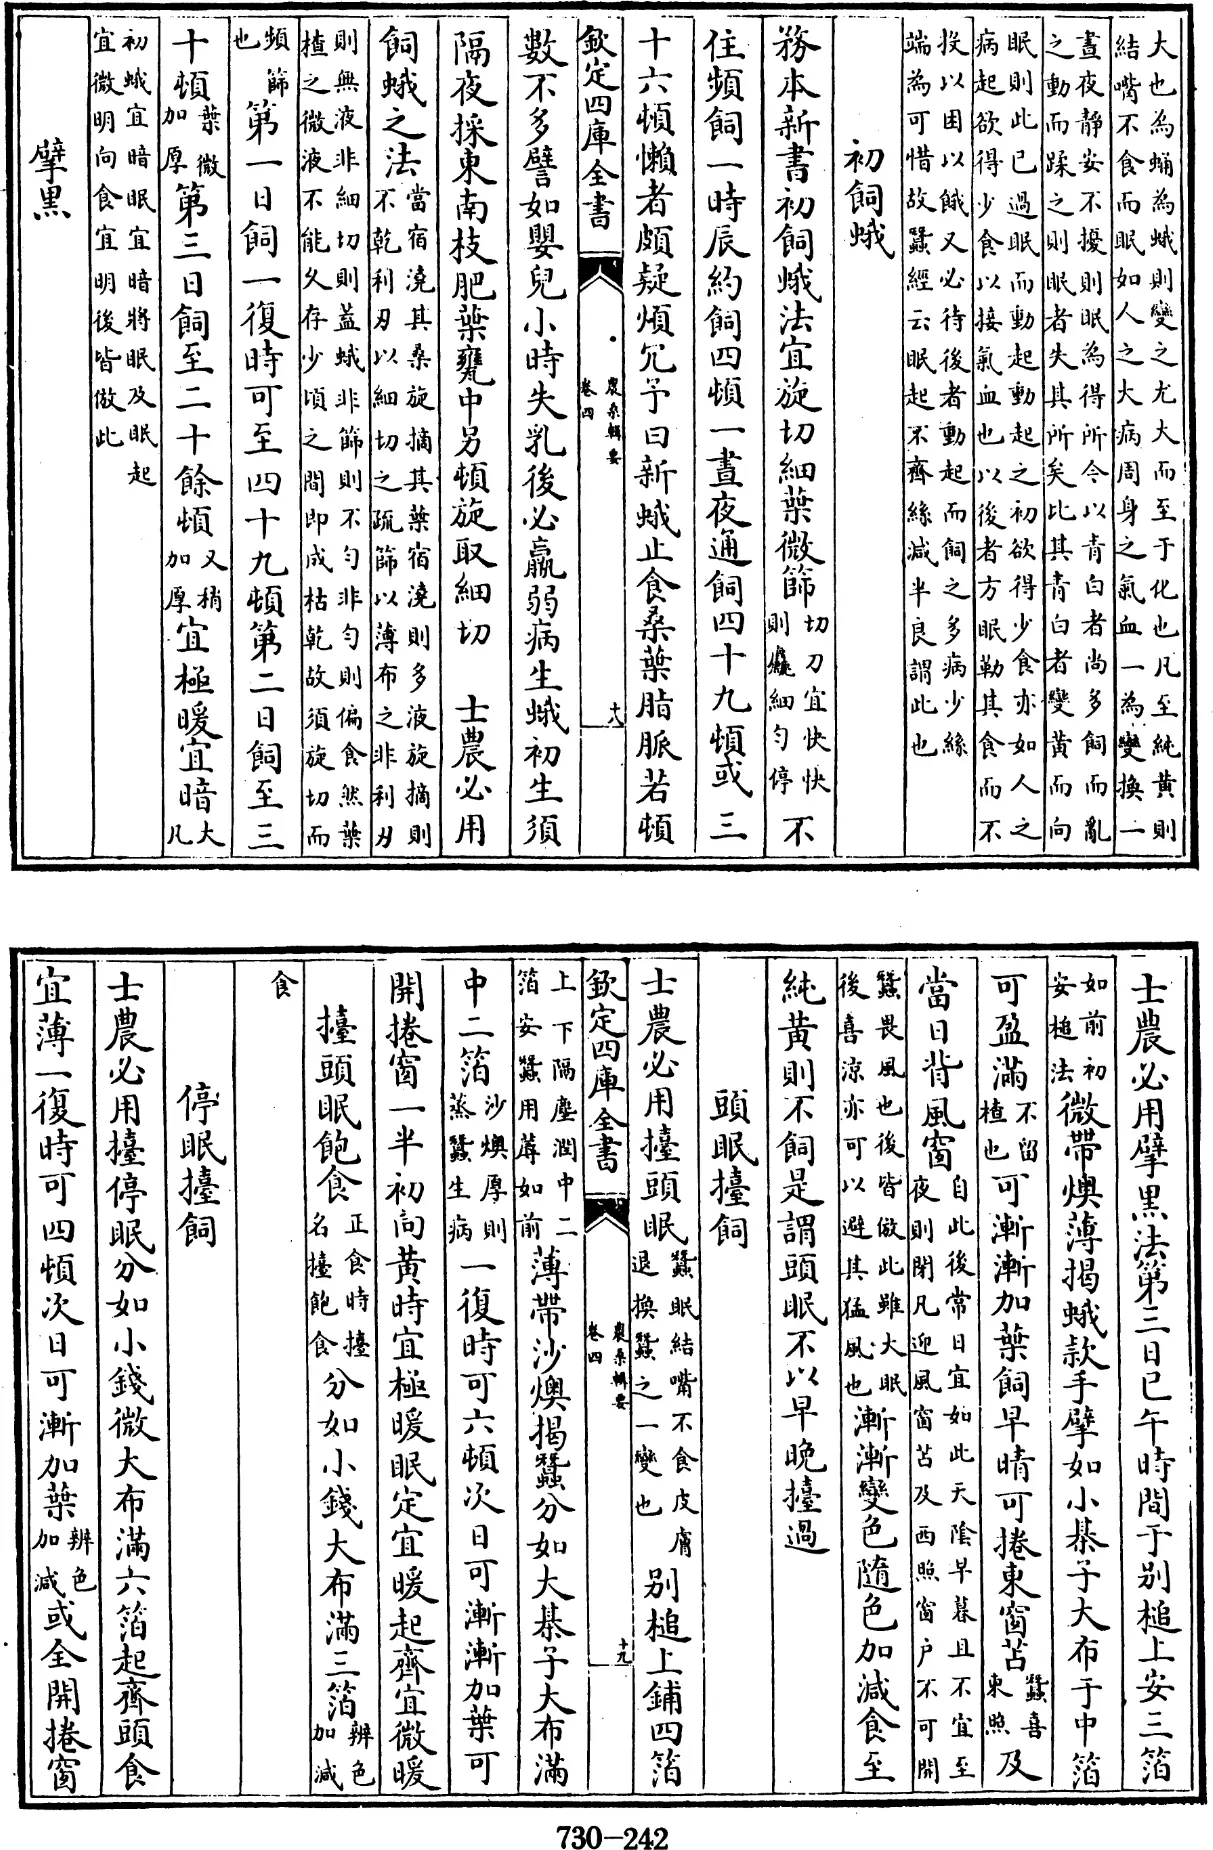 大也為蛹為蛾則變之尤大而至于化也凡至純黃則
結嘴不食而眠如人之大病周身之氣血一為變換一
晝夜靜安不擾則眠為得所今以青白者尚多飼而亂
之動而蹂之則眠者失其所矣此其青白者變黃而向
眠則此已過眠而動起動起之初欲得少食亦如人之
病起欲得少食以接氣血也以後者方眠勒其食而不
投以困以餓又必待後者動起而飼之多病少絲
端為可惜故蠶經云眠起不齊絲減半良謂此也
初飼蛾
務本新書初飼蛾法宜旋切細葉微篩切刀宜快快則纔細勻停不
住頻飼一時辰約飼四頓一晝夜通飼四十九頓或三
十六頓懶者頗疑煩冗予曰新蛾止食桑葉脂脈若頓
欽定四庫全書
農桑輯要
卷四
十八
數不多譬如嬰兒小時失乳後必羸弱病生蛾初生須
隔夜採東南枝肥葉甕中另頓旋取細切 士農必用
飼蛾之法當宿澆其桑旋摘其葉宿澆則多液旋摘則不乾利刃以細切之疏篩以薄布之非利刃
則無液非細切則蓋蛾非篩則不勻非勻則偏食然葉
楂之微液不能久存少頃之間即成枯乾故須旋切而
頻篩也第一日飼一復時可至四十九頓第二日飼至三
十頓葉微加厚第三日飼至二十餘頓又稍加厚宜極暖宜暗大凡
初蛾宜暗眠宜暗將眠及眠起
宜微明向食宜明後皆倣此
擘黑
士農必用擘黑法第三日巳午時間于別槌上安三箔
如前初安槌法微帶燠薄揭蛾款手擘如小棊子大布于中箔
可盈滿不留楂也可漸漸加葉飼早晴可捲東窗苫蠶喜東照及
當日背風窗自此後常日宜如此天陰早暮且不宜至夜則閉凡迎風窗苫及西照窗户不可開
蠶畏風也後皆倣此雖大眠後喜涼亦可以避其猛風也漸漸變色隨色加減食至
純黃則不飼是謂頭眠不以早晚擡過
頭眠擡飼
士農必用擡頭眠蠶眠結嘴不食皮膚退換蠶之一變也別槌上鋪四箔
欽定四庫全書
農桑輯要
卷四
十九
上下隔塵潤中二箔安蠶用蓐如前薄帶沙燠揭蠶分如大棊子大布滿
中二箔沙燠厚則蒸蠶生病一復時可六頓次日可漸漸加葉可
開捲窗一半初向黃時宜極暖眠定宜暖起齊宜微暖
擡頭眠飽食正食時擡名擡飽食分如小錢大布滿三箔辨色加減
食
停眠擡飼
士農必用擡停眠分如小錢微大布滿六箔起齊頭食
宜薄一復時可四頓次日可漸加葉辨色加減或全開捲窗
730-242